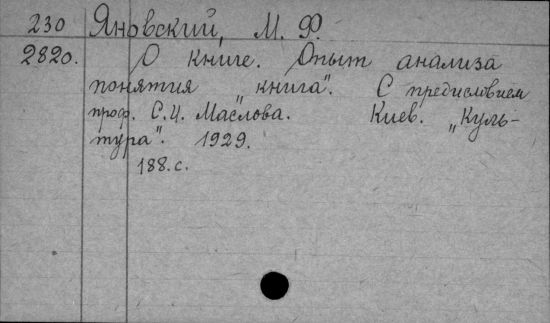 230 Яновский, М. Ф.
2820. О книге. Опыт анализа
понятия „книга". С предисловием
проф. С.И. Маслова. Киев. „Куль-
тура". 1929.
188.с.